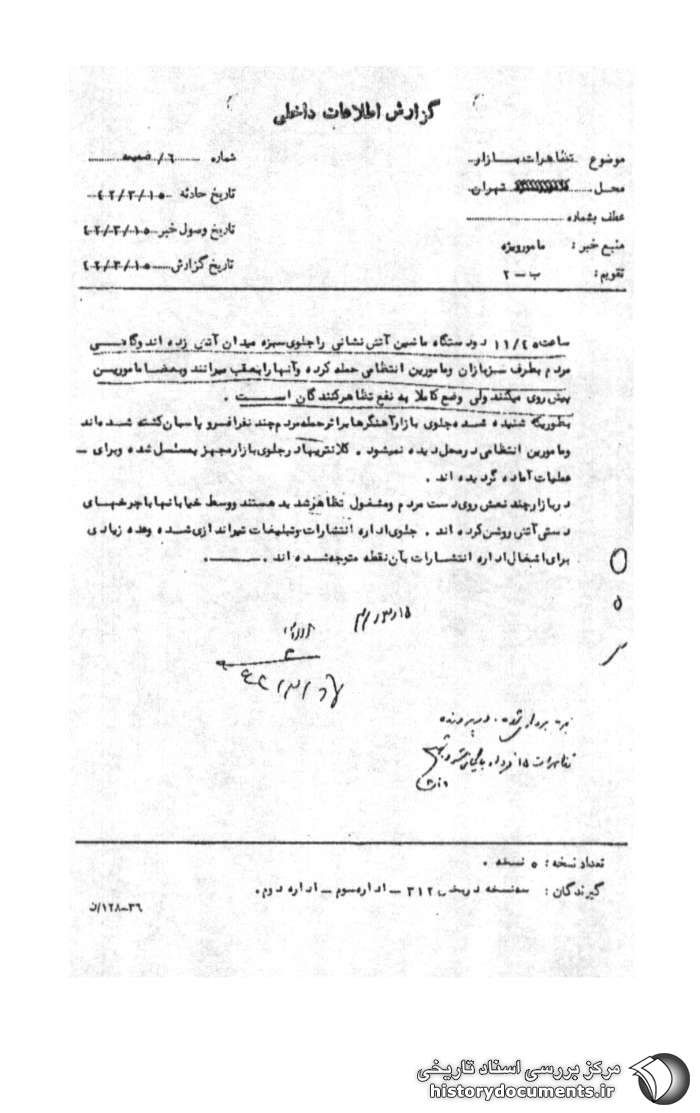 گزارش اطلاعات داخلی
موضوع تظاهرات بازار
شماره ۶/ ضمیمه
محل تهران
تاریخ حادثه ۴۲/۳/۱۵
عطف بشماره
تاریخ وصول خبر ۴۲/۳/۱۵
منبع خبر : مامورویژه
تاریخ گزارش ۴۲/۳/۱۵
تقویم : ب – ۲
ساعت ۱۱/۴۵ دودستگاه ماشین آتش نشانی راجلوی سبزه میدان آتش زده اندوگاهی
مردم بطرف سربازان ومامورین انتظامی حمله کرده وآنهارابعقب میرانند وبعضا مامورین
پیش روی میکنند ولی وضع کاملا به نفع تظاهرکنندگان است .
بطوریکه شنیده شده جلوی بازارآهنگرها براثرحمله مردم چند نفرافسرو پاسبان کشته شده اند
ومامورین انتظامی درمحل دیده نمیشود . کلانتریها درجلوی بازارمجهز بمسلسل شده وبرای –
عملیات آماده گردیده اند .
دربازارچند نعش روی دست مردم ومشغول تظاهرشدید هستند ووسط خیابانها باچرخهای
دستی آتش روشن کرده اند . جلوی اداره انتشارات وتبلیغات تیراندازی شده وعده زیادی
برای اشغال اداره انتشارات بآن نقطه متوجه شده اند .
بهره برداری شد . در پرونده
تظاهرات ۱۵ خرداد بایگانی شود
تعداد نسخه : ۵ نسخه .
گیرندگان : سه نسخه دربخش ۳۱۲ – اداره سوم – اداره دوم .
۳۶–۱۲۸/ن
مرکز بررسی اسناد تاریخی
historydocuments.ir